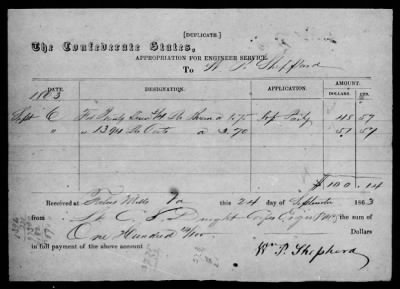 [DUPLICATE.]
The Confederate States,
APPROPRIATION FOR ENGINEER SERVICE.
To W. P. Shepherd
DATE. DESIGNATION. APPLICATION. AMOUNT.
DOLLARS. CTS.
1863
Sept 6 For Twenty a 1.75 Top Party 48 57
" " 1394 lbs Oats a 3.70 51 57
$ 100.14
Received at Mills Va this 24 day of September 1863
from Lt. C. S. Dwight Corps Engrs the sum of
One Hundred 14/100 Dollars
in full payment of the above account
Wm P. Shepherd